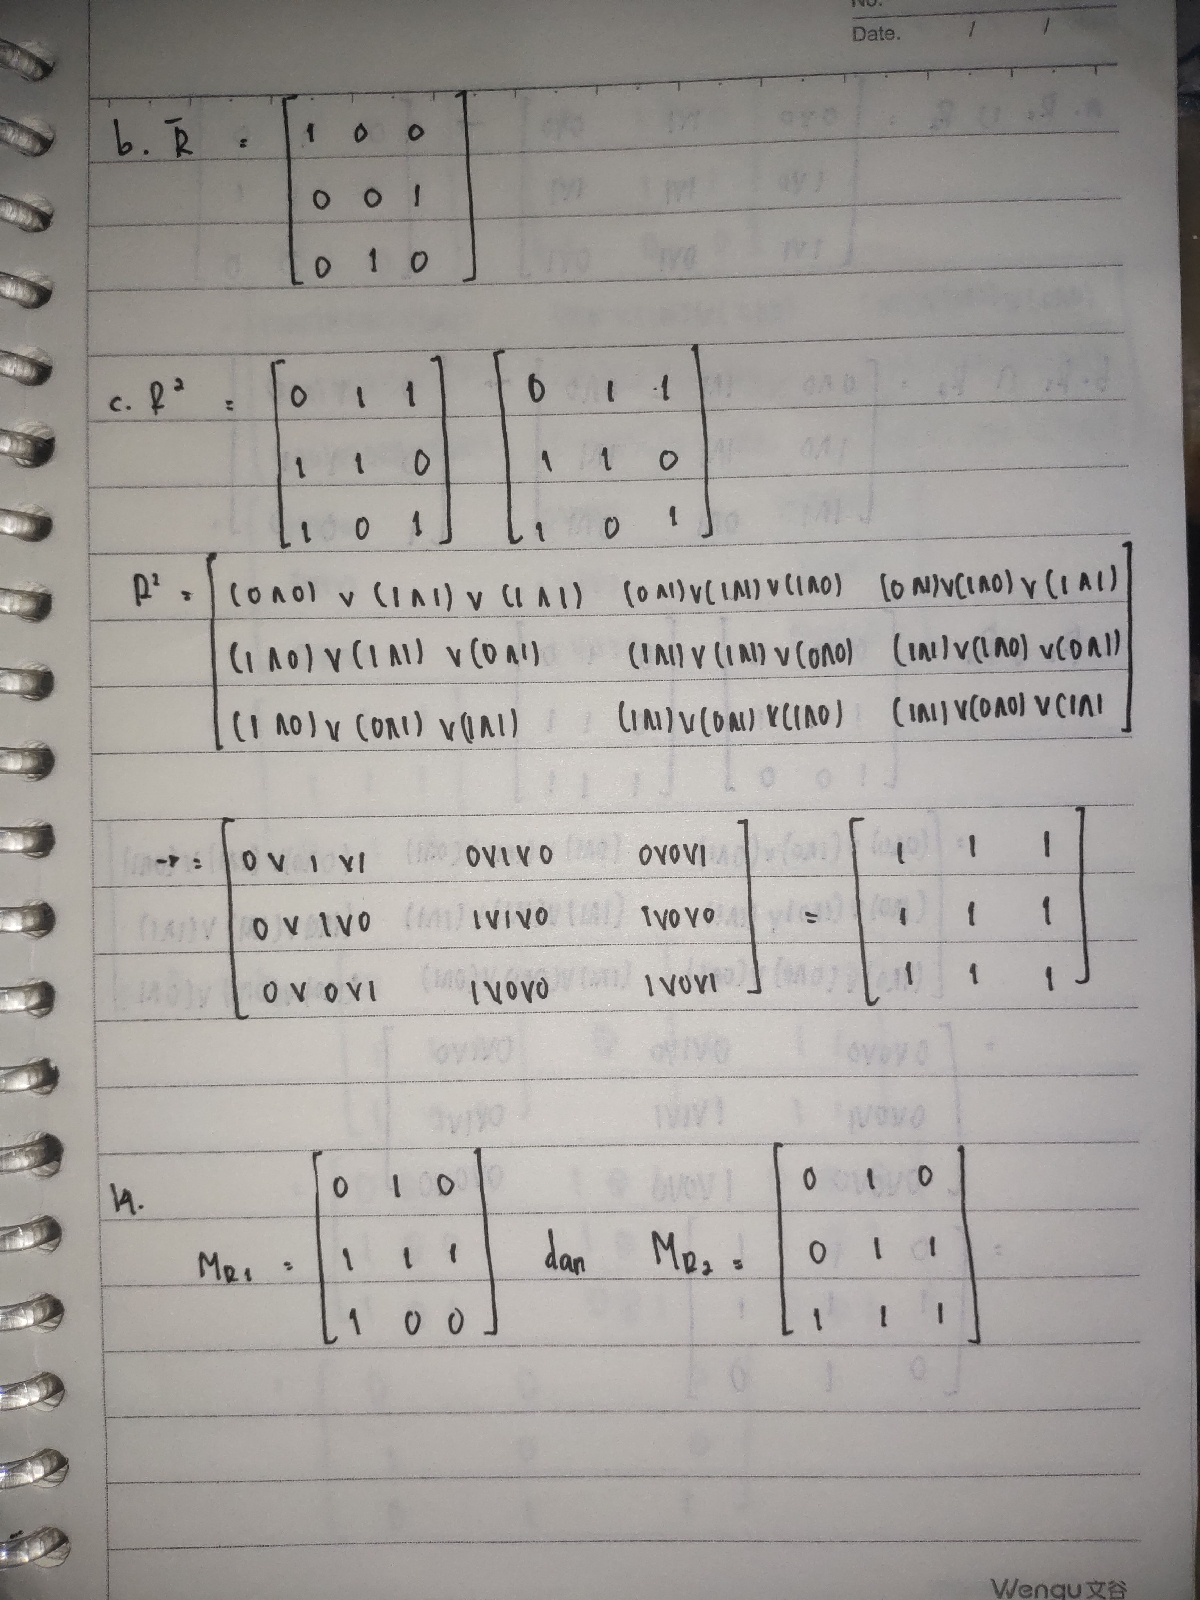 No.
Date. / /
b. R̄ = [1 0 0
0 0 1
0 1 0]
c. R² = [0 1 1 [0 1 1
1 1 0] 1 1 0]
1 0 1] 1 0 1]
R² = [(0∧0) ∨ (1∧1) ∨ (1∧1) (0∧1)∨(1∧1)∨(1∧0) (0∧1)∨(1∧0)∨(1∧1)
(1∧0)∨(1∧1) ∨(0∧1) (1∧1)∨(1∧1)∨(0∧0) (1∧1)∨(1∧0)∨(0∧1)
(1∧0)∨(0∧1)∨(1∧1) (1∧1)∨(0∧1)∨(1∧0) (1∧1)∨(0∧0)∨(1∧1]
→ = [0∨1∨1 0∨1∨0 0∨0∨1 [1 1 1
0∨1∨0 1∨1∨0 1∨0∨0 = 1 1 1
0∨0∨1 1∨0∨0 1∨0∨1] 1 1 1]
14. [0 1 0 [0 1 0
M_R1 = 1 1 1 dan M_R2 = 0 1 1
1 0 0] 1 1 1]
Wengu文谷